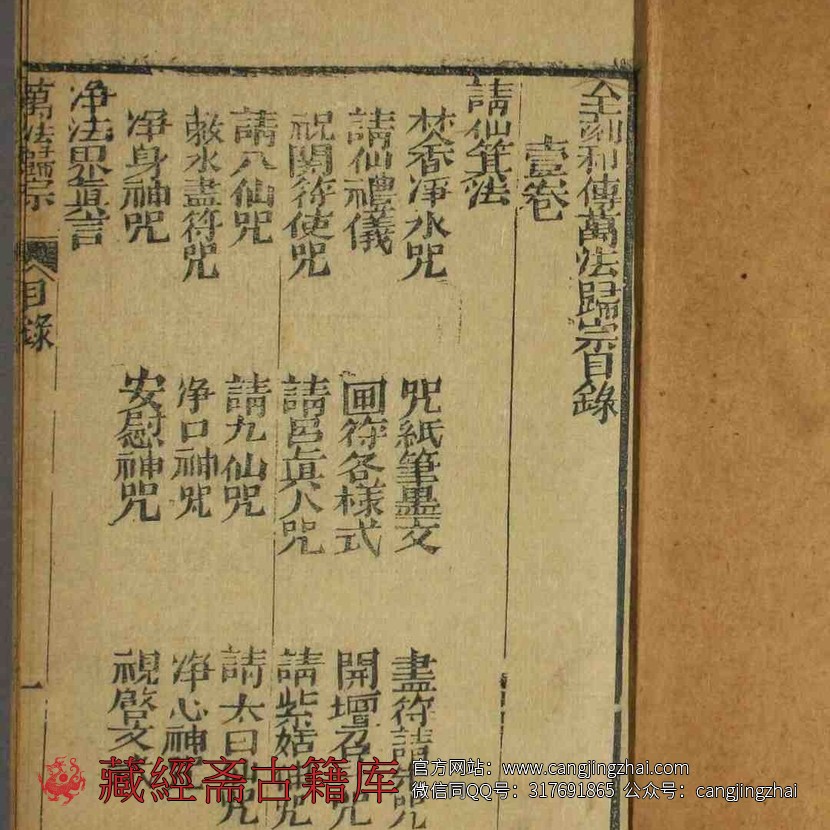 全刻和傳萬法歸宗目錄
壹卷
請仙箕法
焚香淨水咒 咒紙筆墨文 畫符請咒
請仙禮儀 画符各樣式 開壇召咒
祝関符使咒 請邑眞人咒 請紫姑神咒
請八仙咒 請九仙咒 請太白咒
敕水畫符咒 净口神咒 净心神
净身神咒 安慰神咒 視啓文
净法界眞言
萬法歸宗 目錄 一
藏經斋古籍库
官方网站：www.cangjingzhai.com
微信同QQ号：317691865 公众号：cangjingzhai